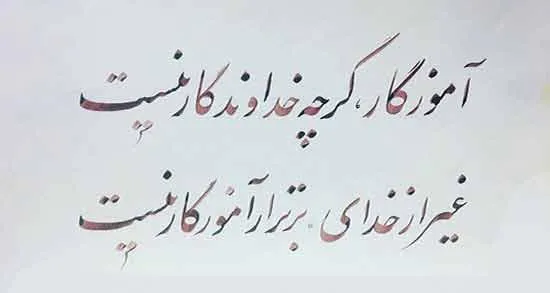 آموزگار، گرچه خداوندگار نیست
غیر از خدای برتر از آموزگار نیست